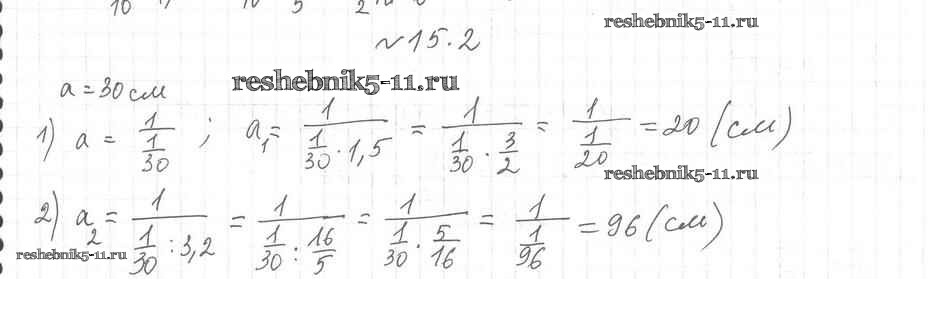 10 10 5 2
reshebnik5-11.ru
№15.2
a = 30 см
reshebnik5-11.ru
1) a = 1/(1/30) ; a₁ = 1/(1/30 · 1,5) = 1/(1/30 · 3/2) = 1/(1/20) = 20 (см)
reshebnik5-11.ru
2) a₂ = 1/(1/30 : 3,2) = 1/(1/30 : 16/5) = 1/(1/30 · 5/16) = 1/(1/96) = 96 (см)
reshebnik5-11.ru